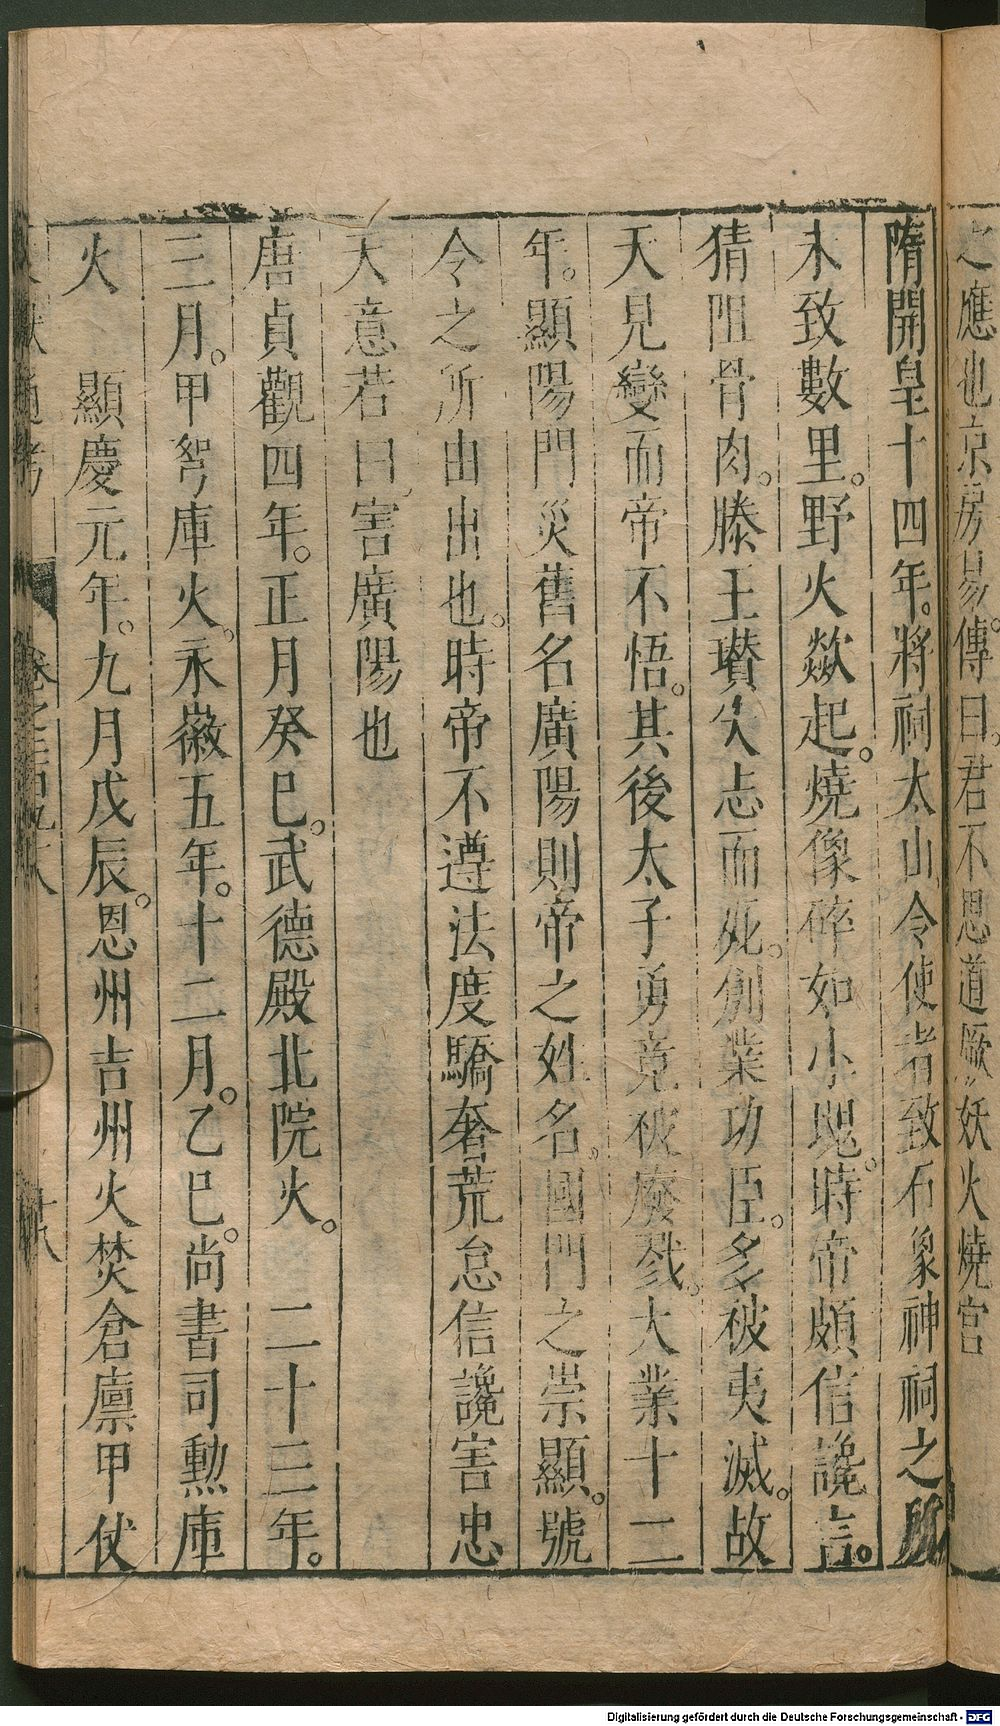 之應也京房易傳曰。君不思道厥妖火燒宮
隋開皇十四年。將祠太山令使者致石象神祠之所
未致數里。野火欻起。燒像碎如小塊。時帝頗信讒言。
猜阻骨肉。滕王瓚失志而死。創業功臣。多被夷滅。故
天見變而帝不悟。其後太子勇竟被廢戮。大業十二
年。顯陽門災舊名廣陽則帝之姓名。國門之崇顯。號
令之所由出也。時帝不遵法度驕奢荒怠信讒害忠
天意若曰害廣陽也
唐貞觀四年。正月癸巳。武德殿北院火。 二十三年。
三月。甲弩庫火。永徽五年。十二月。乙巳。尚書司勳庫
火 顯慶元年。九月戊辰。恩州吉州火焚倉廩甲仗
通考
卷之二百九十八
十八
Digitalisierung gefördert durch die Deutsche Forschungsgemeinschaft - DFG